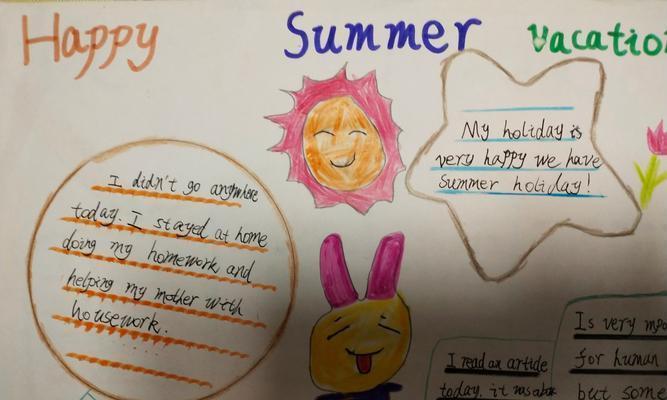 Happy Summer Vacation
My holiday is
very happy we have
Summer holiday!
I didn't go anywhere
today. I stayed at home
doing my homework and
helping my mother with
housework.
I read an article
today. it was about
Is very
for human
but some